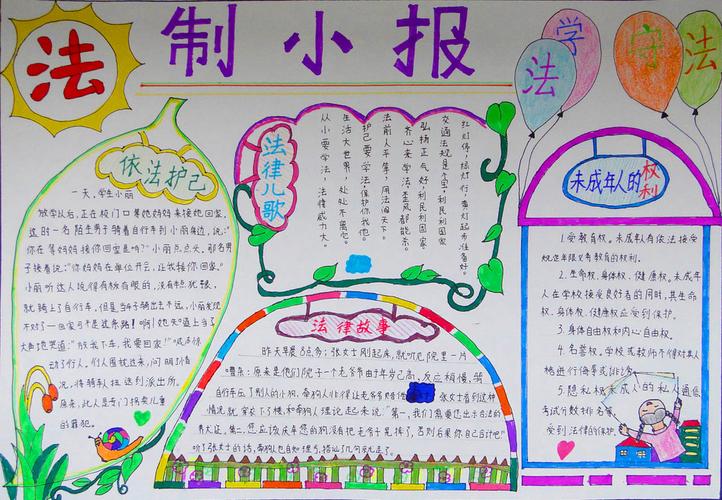 法制小报
学法
守法
依法护己
一天，学生小丽
放学以后，正在校门口等她妈妈来接他回家，
这时一名陌生男子骑着自行车到小丽身边，说：“
你在等妈妈接你回家是吗？”小丽点点头，那名男
子接着说：“你妈妈在单位开会，让我接你回家。”
小丽听这人说得有板有眼的，没有半点犹豫，
就骑上了自行车，但是当车子骑出去不远，小丽发现
不对了一回家可不是这条路！
大声地哭道：“放我下去，我要回家！”
动了行人，们人围拢过来，问明情
况，将骑车人扭送到派出所。
原来，此人是专门拐卖儿童
的罪犯。
法律儿歌
红灯停，绿灯行，黄灯起步准备好。
交通法规是个宝，利民利国家
弘扬正气好，利民利国家
齐心来学法，歪风都能杀。
法前人平等，用法闯天下。
护己要学法，保护你我他。
生活大世界，处处不离它。
从小要学法，法律威力大。
法律故事
昨天早晨8点多，张女士刚起床，就听见院里一片
嘈杂，原来是他们院子一个老爷爷由于年岁已高，反应稍慢，骑
自行车压了别人的小狗，
情况就穿衣下了楼，和牵狗人理论起来说：“第一，我们需要您出示合法的
养犬证，第二，您应该庆幸您的狗没有把老爷子晃摔了，否则后果你自己合计吧！”
听了张女士的话，牵狗人也自知理亏，搭讪了几句就走了。
未成年人的权利
1.受教育权。未成年人有依法接受
规定年限义务教育的权利。
2.生命权、身体权、健康权。未成年
人在学校接受良好者的同时，其生命
权、身体权、健康权应受到保护。
3.身体自由权和内心自由权。
4.名誉权。学校或教师不得对本人
格进行侮辱或诽谤。
5.隐私权未成人的私人通信
考试分数排名等
受到法律的保护。